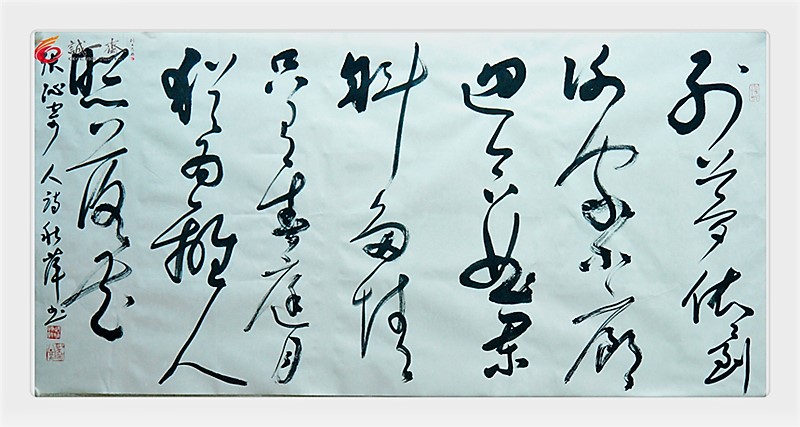 别梦依依到
谢家小廊
迴合曲栏
斜多情
只有春庭月
犹为離人
照落花
张泌寄人诗 秋萍书
誠齋